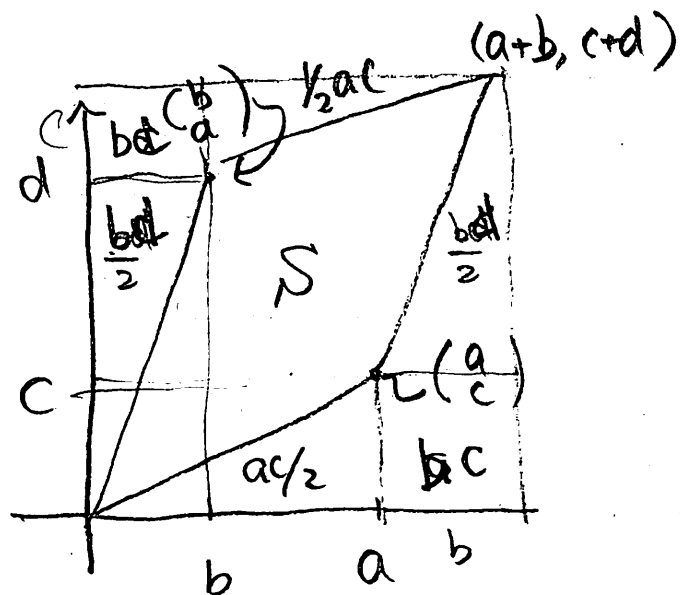 (a+b, c+d)
½ac
C
bc
(b
a)
d
bd
2
S
bd
2
C
(a
c)
ac/2
bc
b
a
b